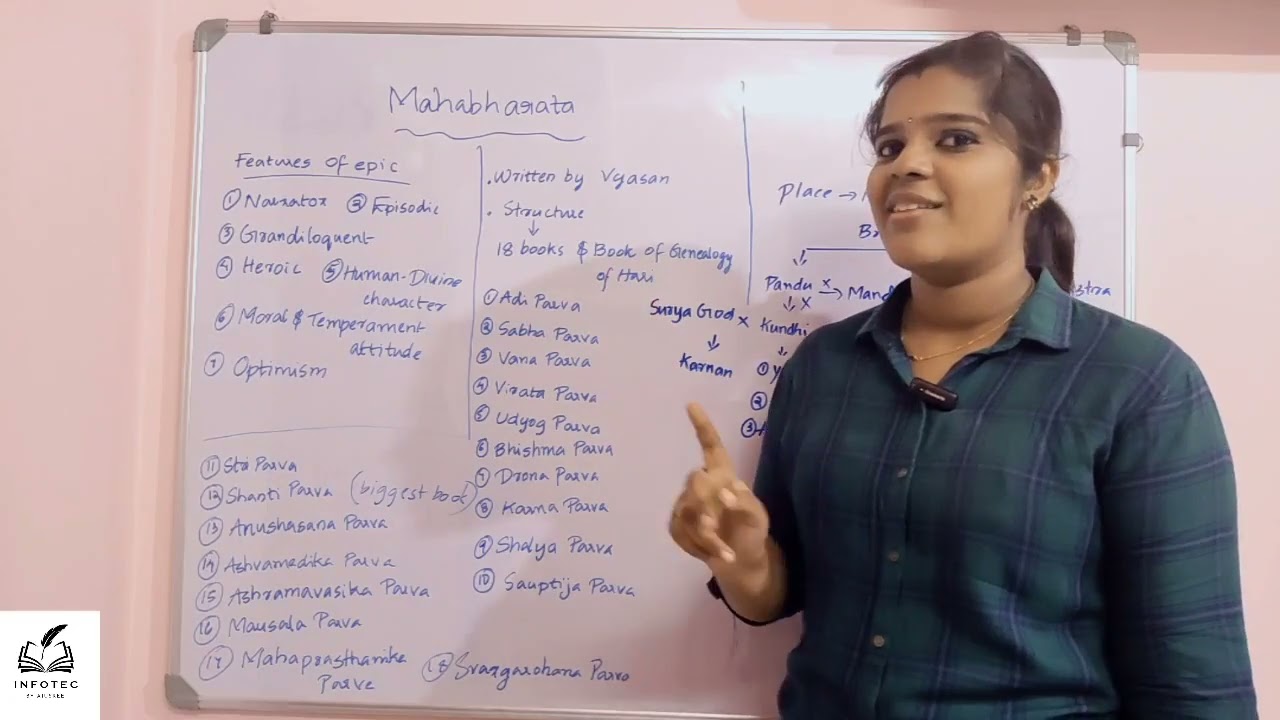 Mahabharata
Features of epic
① Narrator ② Episodic
③ Grandiloquent
④ Heroic ⑤ Human-Divine
character
⑥ Moral & Temperament
attitude
⑦ Optimism
. Written by Vyasan
. Structure
↓
18 books & Book of Genealogy
of Hari
① Adi Parva
② Sabha Parva
③ Vana Parva
④ Virata Parva
⑤ Udyog Parva
⑥ Bhishma Parva
⑦ Drona Parva
⑧ Karna Parva
⑨ Shalya Parva
⑩ Sauptija Parva
⑪ Stri Parva
⑫ Shanti Parva (biggest book)
⑬ Anushasana Parva
⑭ Ashvamedika Parva
⑮ Ashramavasika Parva
⑯ Mausala Parva
⑰ Mahaprasthanika
Parve
⑱ Svargarohana Parva
Place →
Pandu x → Mand
Surya God x Kundhi
↓
Karnan
①
②
③
INFOTEC